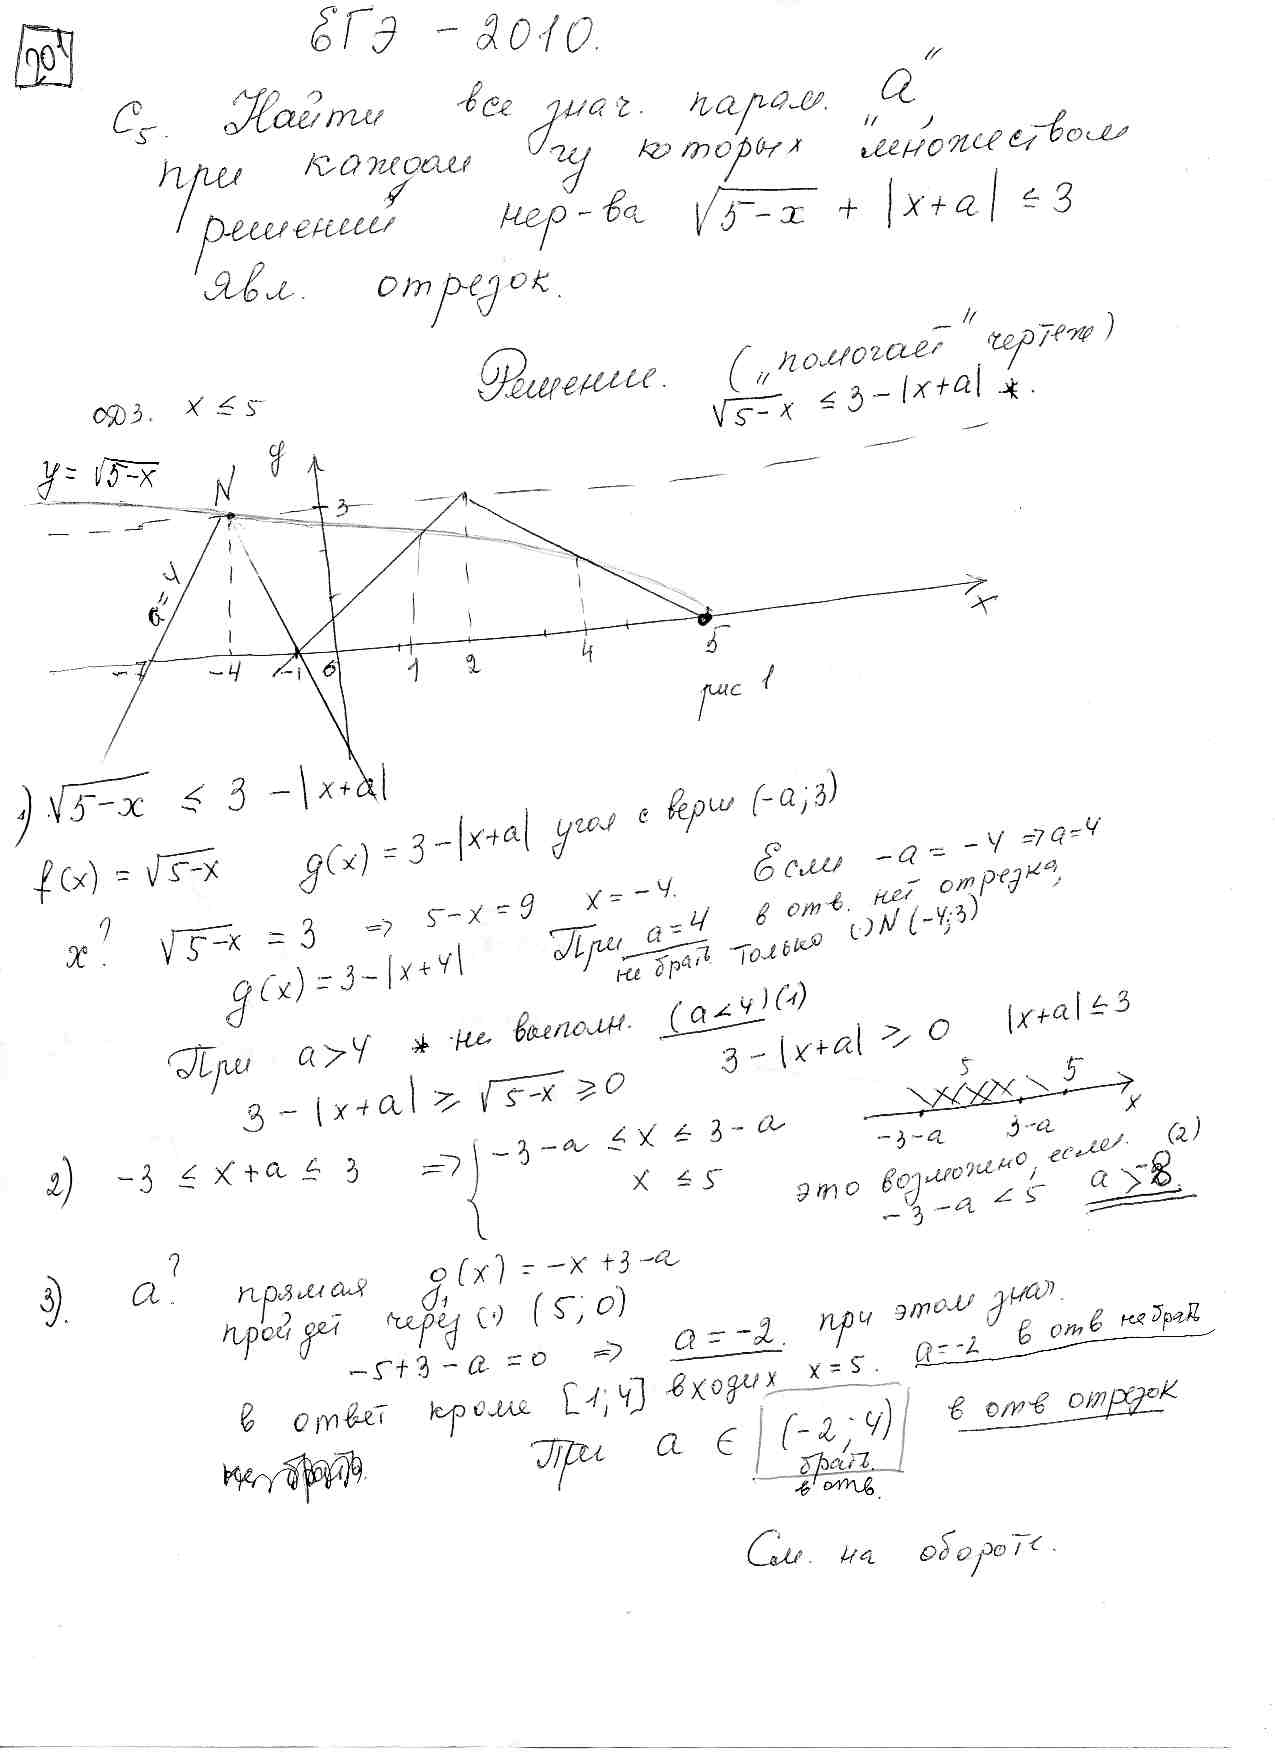 201
ЕГЭ - 2010.
C5. Найти все знач. парам. "а",
при каждом из которых множеством
решений нер-ва √5-x + |x+a| ≤ 3
явл. отрезок.
Решение. („помогает" чертеж)
ОДЗ. x ≤ 5
√5-x ≤ 3-|x+a| *.
y = √5-x
N y
3
a=4
-7 -4 -1 0 1 2 4 5 x
рис 1
1) √5-x ≤ 3 - |x+a|
f(x) = √5-x g(x) = 3-|x+a| угол с верш (-a; 3)
x? √5-x = 3 => 5-x = 9 x = -4. Если -a = -4 => a=4
g(x) = 3-|x+4| При a=4 в отв. нет отрезка,
не брать только (·) N (-4;3)
При a>4 * не выполн. (a<4) (1)
3-|x+a| ≥ √5-x ≥ 0 3-|x+a| ≥ 0 |x+a| ≤ 3
5 5
-3-a 3-a x
2) -3 ≤ x+a ≤ 3 => { -3-a ≤ x ≤ 3-a
x ≤ 5 это возможно, если. (2)
-3-a < 5 a > -8.
3). a? прямая g1(x) = -x+3-a
пройдет через (·) (5; 0)
-5+3-a=0 => a=-2. при этом знач.
в ответ кроме [1;4] входит x=5. a=-2 в отв не брать
При a ∈ (-2; 4) в отв отрезок
брать.
в отв.
См. на обороте.